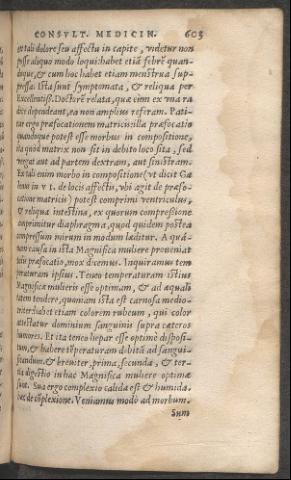 CONSVLT. MEDICIN. 603
ex tali dolore seu affectu in capite, videtur non
posse aliquo modo loqui: habet etiā febrē quan-
dique, & cum hoc habet etiam menstrua sup-
pressa. Ista sunt symptomata, & reliqua per
Excellentiss. Doctorē relata, quæ cùm ex vna ra
dice dependeant, ea non amplius referam. Pati-
tur ergo præfocationem matricis: illa præfocatio
quandoque potest esse morbus in compositione,
ita quòd matrix non sit in debito loco sita, sed
vergat aut ad partem dextram, aut sinistram.
Ex tali enim morbo in compositione (vt dicit Ga
lenus in v 1. de locis affectis, vbi agit de præfo-
catione matricis) potest comprimi ventriculus,
& reliqua intestina, ex quorum compressione
comprimitur diaphragma, quod quidem postea
compressum mirum in modum læditur. A quā-
nam causa in ista Magnifica muliere proueniat
talis præfocatio, mox dicemus. Inquiramus tem
peraturam ipsius. Teneo temperaturam istius
Magnificæ mulieris esse optimam, & ad æquali
tatem tendere, quoniam ista est carnosa medio-
criter: habet etiam colorem rubeum, qui color
attestatur dominium sanguinis supra cæteros
humores. Et ita teneo hepar esse optimè disposi-
tum, & habere tēperaturam debitā ad sangui-
ficandum, & breuiter, prima, secunda, & ter-
tia digestio in hac Magnifica muliere optimæ
sunt. Sua ergo complexio calida est & humida.
hæc de cōplexione. Veniamus modò ad morbum.
Sum